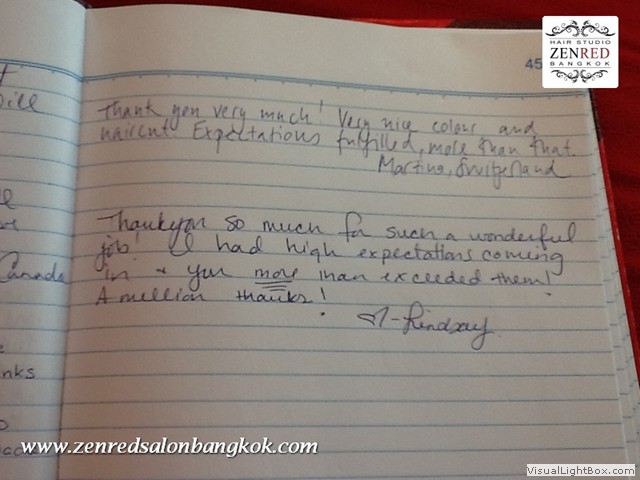 HAIR STUDIO
ZENRED
BANGKOK
45
Thank you very much! Very nice colour and
haircut. Expectations fulfilled, more than that.
Martina, Switzerland
Thankyou so much for such a wonderful
job! I had high expectations coming
in + you more than exceeded them!
A million thanks!
♡-Lindsay
Canada
nks
www.zenredsalonbangkok.com
VisualLightBox.com